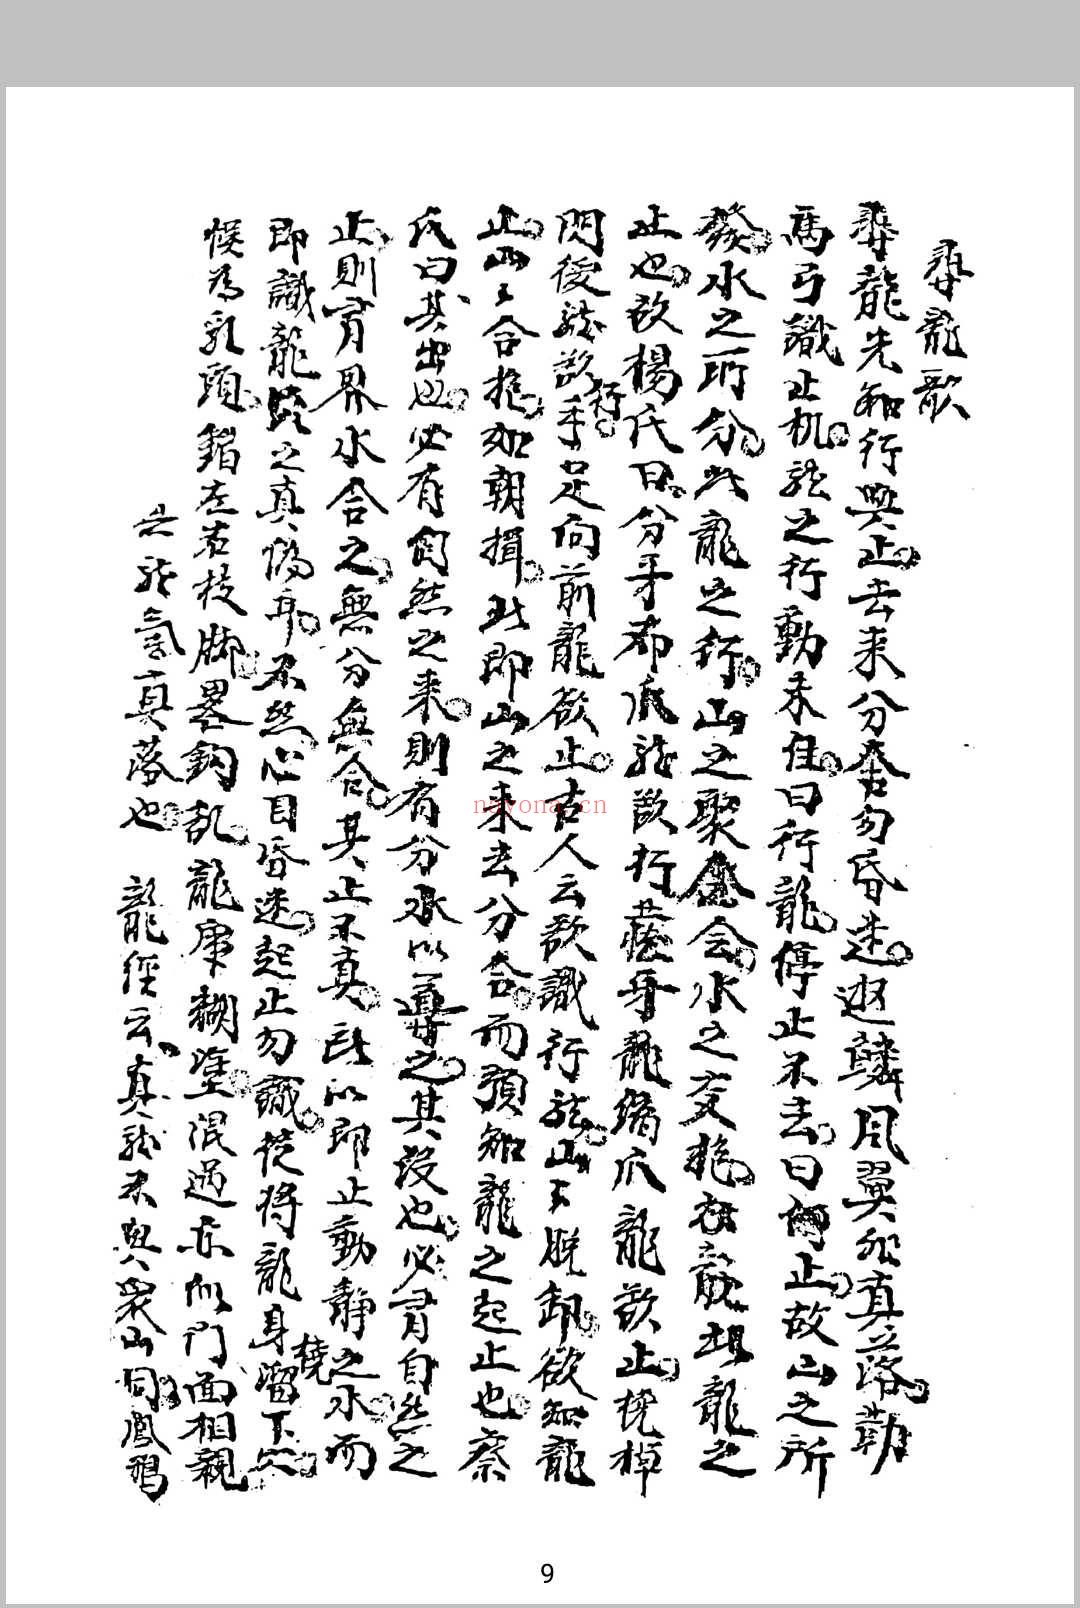 尋龍歌
尋龍先知行與止去来分合勿昏迷返轔風翼矛真路勒
馬弓識止机龍之行動未住曰行龍停止不去曰何止故山之所
發水之所分此龍之行山之聚會水之交抱衣龍胡龍之
止也故楊氏曰分牙布爪龍欲行藏牙龍縮爪龍欲止挠棹
閃後龍欲行手足向前龍欲止古人云欲識行龍山々脱卸欲知龍
止山々合抱如朝揖此即山之来去分合而預知龍之起止也蔡
氏曰其出也必有自然之来則有分水以尋之其没也必有自然之
止則有界水合之無分無合其止不真所以即止動静之水而
即識龍贤之真偽耳不然心目昏迷起止勿識徒将龍身撓㴰下穴
悮為乳頭錯左右枝脚畧鈎乱龍庫糊塗混過亦似门面相親
龍經云真龍不與衆山同鳳鵶
去龍氣真落也
9
nayona.cn